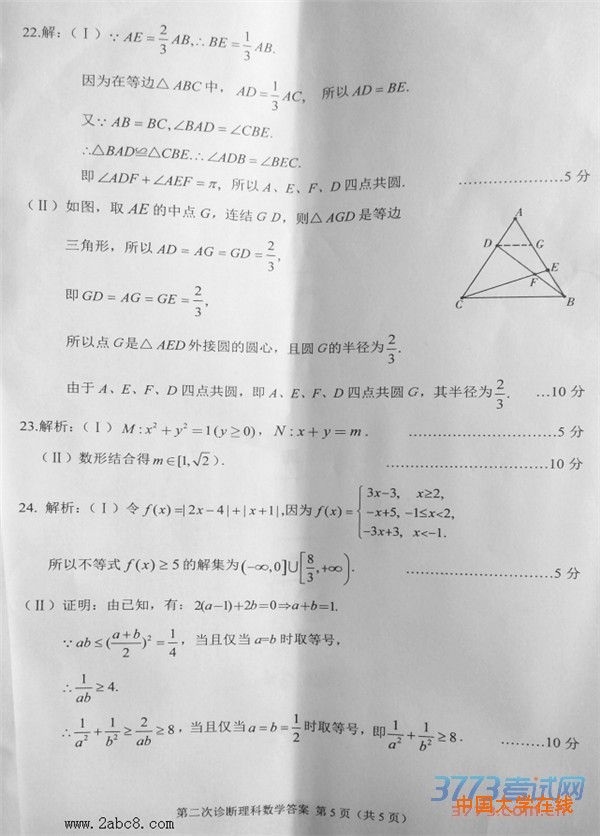 22.解：(Ⅰ) ∵ AE = 2/3 AB, ∴ BE = 1/3 AB.
因为在等边△ ABC 中，AD = 1/3 AC， 所以 AD = BE.
又∵ AB = BC, ∠BAD = ∠CBE.
∴△BAD≌△CBE.∴∠ADB = ∠BEC.
即 ∠ADF + ∠AEF = π，所以 A、E、F、D 四点共圆. ……………………5 分
(Ⅱ) 如图，取 AE 的中点 G，连结 G D，则△ AGD 是等边
三角形，所以 AD = AG = GD = 2/3，
即 GD = AG = GE = 2/3，
所以点 G是△ AED 外接圆的圆心，且圆 G的半径为 2/3.
由于 A、E、F、D 四点共圆，即 A、E、F、D 四点共圆 G，其半径为 2/3. …10 分
A
D
G
E
F
C
B
23.解析：(Ⅰ) M : x² + y² = 1(y ≥ 0)，N : x + y = m . ……………………5 分
(Ⅱ) 数形结合得 m∈[1, √2 ). ……………………10 分
24. 解析：(Ⅰ) 令 f(x)=| 2x-4 | + | x+1 |,因为 f(x) = { 3x-3, x≥2, -x+5, -1≤x<2, -3x+3, x<-1.
所以不等式 f(x) ≥ 5 的解集为 (-∞,0]∪[8/3,+∞). ……………………5 分
(Ⅱ) 证明：由已知，有：2(a-1)+2b=0⇒a+b=1.
∵ ab ≤ ((a+b)/2)² = 1/4，当且仅当 a=b 时取等号，
∴ 1/ab ≥ 4.
∴ 1/a² + 1/b² ≥ 2/ab ≥ 8，当且仅当 a = b = 1/2 时取等号，即 1/a² + 1/b² ≥ 8 . ………10 分
第二次诊断理科数学答案 第 5 页（共 5 页）
www.2abc8.com
3773考试网
中国大学在线